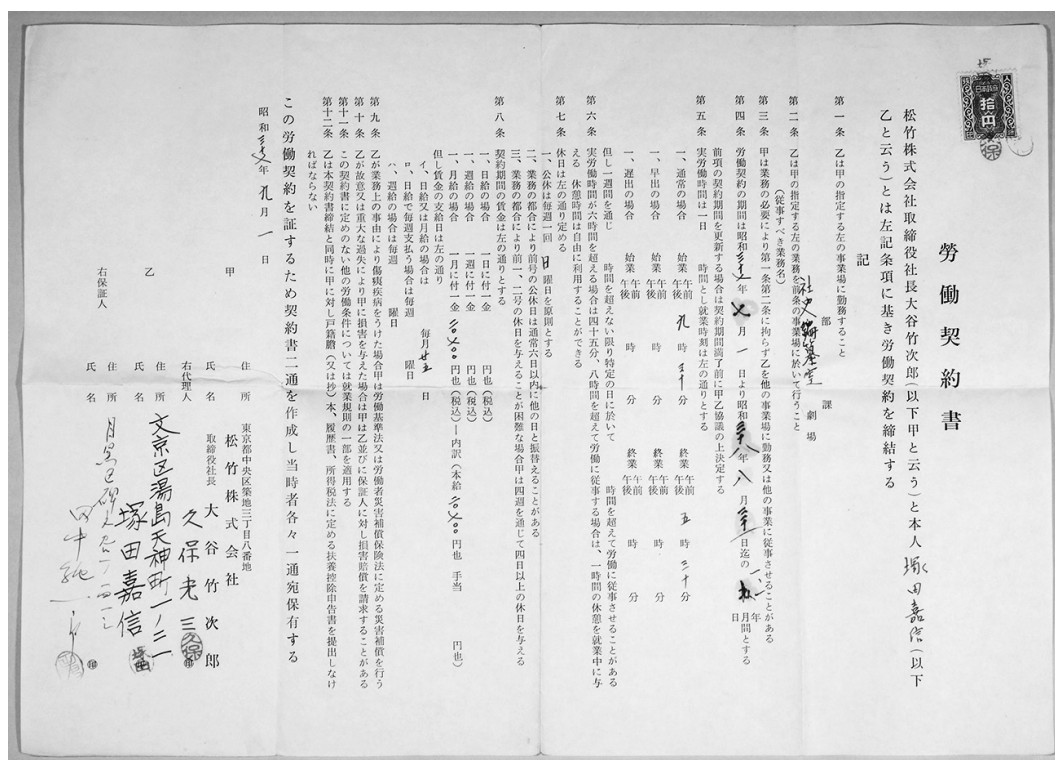 拾円
勞働契約書
松竹株式会社取締役社長大谷竹次郎(以下甲と云う)と本人 塚田嘉信(以下
乙と云う)とは左記条項に基き労働契約を締結する
記
第一条 乙は甲の指定する左の事業場に勤務すること
社史編纂室 部 課 劇場
第二条 乙は甲の指定する左の業務を前条の事業場に於いて行うこと
(従事すべき業務名)
第三条 甲は業務の必要により第一条第二条に拘らず乙を他の事業場に勤務又は他の事業に従事させることがある
第四条 労働契約の期間は昭和 年 七月一日より昭和三十八年八月三十一日迄の 年 月間とする 日
前項の契約期間を更新する場合は契約期間満了前に甲乙協議の上決定する
第五条 実労働時間は一日 時間とし就業時刻は左の通りとする
一、通常の場合 始業 午前 午後 九時三十分 終業 午前 午後 五時三十分
一、早出の場合 始業 午前 午後 時 分 終業 午前 午後 時 分
一、遅出の場合 始業 午前 午後 時 分 終業 午前 午後 時 分
但し一週間を通じ 時間を超えない限り特定の日に於いて 時間を超えて労働に従事させることがある
第六条 実労働時間が六時間を超える場合は四十五分、八時間を超えて労働に従事する場合は、一時間の休憩を就業中に与
える 休憩時間は自由に利用することができる
第七条 休日は左の通り定める
一、公休は毎週一回 日 曜日を原則とする
二、業務の都合により前号の公休日は通常六日以内に他の日と振替えることがある
三、業務の都合により前一、二号の休日を与えることが困難な場合甲は四週を通じて四日以上の休日を与える
第八条 契約期間の賃金は左の通りとする
一、日給の場合 一日に付一金 円也(税込)
一、週給の場合 一週に付一金 円也(税込)
一、月給の場合 一月に付一金 円也(税込)―内訳(本給 円也 手当 円也)
但し賃金の支給日は左の通り
イ、日給又は月給の場合は 毎月廿五日
ロ、日給で毎週支払う場合は毎週 曜日
ハ、週給の場合は毎週 曜日
第九条 乙が業務上の事由により傷痍疾病をうけた場合甲は労働基準法又は労働者災害補償保険法に定める災害補償を行う
第十条 乙が故意又は重大な過失により甲に損害を与えた場合は甲は乙並びに保証人に対し損害賠償を請求することがある
第十一条 この契約書に定めのない他の労働条件については就業規則の一部を適用する
第十二条 乙は本契約書締結と同時に甲に対し戸籍謄(又は抄)本、履歴書、所得税法に定める扶養控除申告書を提出しなけ
ればならない
この労働契約を証するため契約書二通を作成し当時者各々一通宛保有する
昭和 年 九月一日
甲 住所 東京都中央区築地三丁目八番地
松竹株式会社
氏名 取締役社長 大谷竹次郎 ㊞
右代理人 久保光三
乙 住所 文京区湯島天神町一ノ二一
氏名 塚田嘉信
右保証人 住所
氏名 ㊞